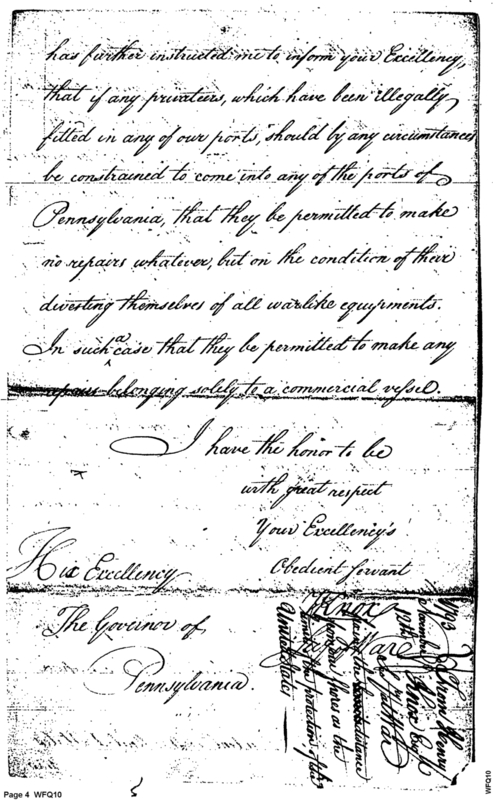 has further instructed me to inform your Excellency,
that if any privateers, which have been illegally
fitted in any of our ports, should by any circumstances
be constrained to come into any of the ports of
Pennsylvania, that they be permitted to make
no repairs whatever, but on the condition of their
divesting themselves of all warlike equipments.
In such a case that they be permitted to make any
repairs belonging solely to a commercial vessel.
I have the honor to be
with great respect
Your Excellency's
Obedient Servant
HKnox
His Excellency
The Governor of
Pennsylvania.
From Henry
Knox Esq
of War
the protection of the
United States
Page 4 WFQ10
WFQ10